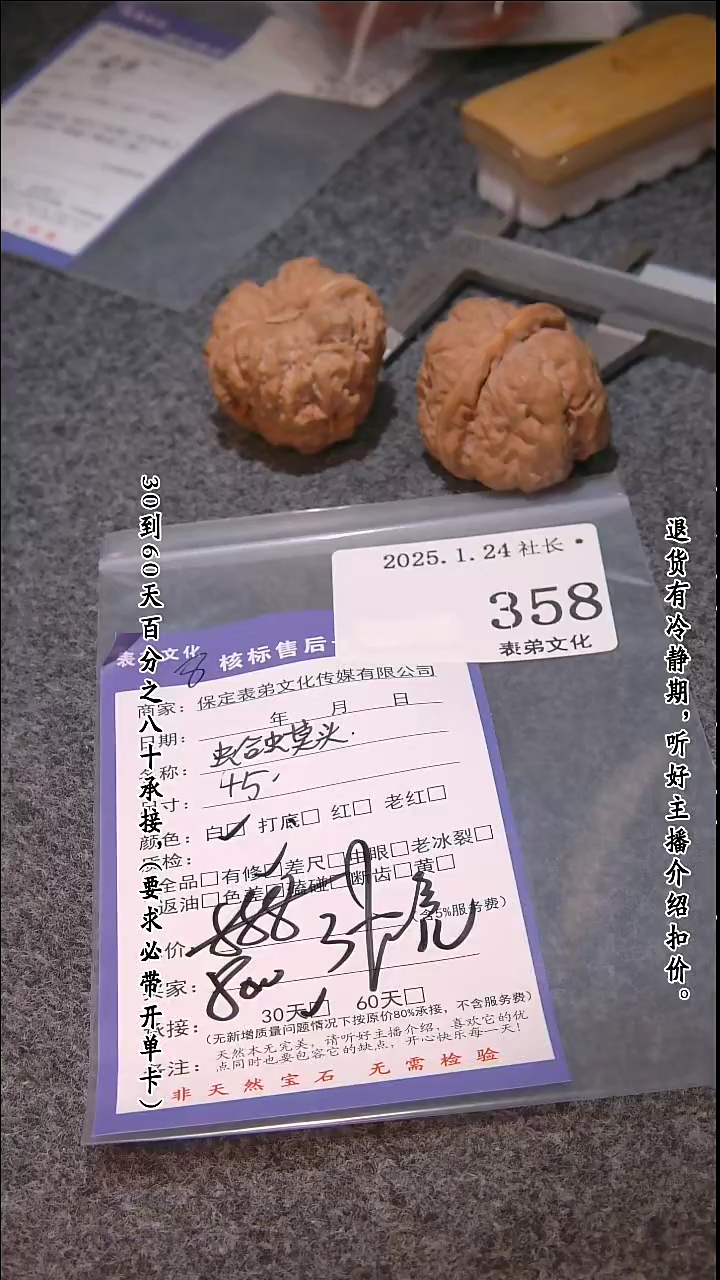 2025.1.24 社长·
358
表弟文化
表弟文化
核标售后
商家：保定表弟文化传媒有限公司
日期： 年 月 日
名称：虫合虫莫头.
尺寸：45.
颜色：白□ 打底□ 红□ 老红□
质检：
全品□有修□差尺□阴眼□老冰裂□
返油□色差□磕碰□断齿□黄□
价 888 (含5%服务费)
家：800
承接：30天□ 60天□
(无新增质量问题情况下按原价80%承接，不含服务费)
备注：天然本无完美，请听好主播介绍，喜欢它的优
点同时也要包容它的缺点，开心快乐每一天！
非天然宝石 无需检验
30到60天百分之八十承接，(要求必带开单卡)
退货有冷静期，听好主播介绍扣价。